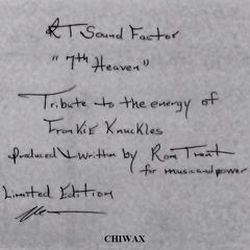 RT Sound Factor
"7th Heaven"
Tribute to the energy of
Frankie Knuckles
produced & written by Ron Trent
for musicandpower
Limited Edition
CHIWAX